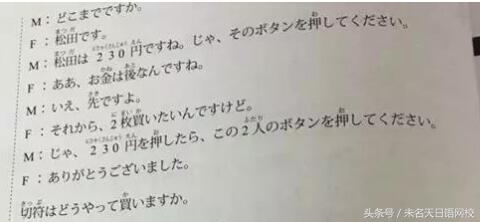 M：どこまでですか。
F：松田です。
M：松田は230円ですね。じゃ、そのボタンを押してください。
F：ああ、お金は後なんですね。
M：いえ、先ですよ。
F：それから、2枚買いたいんですけど。
M：じゃ、230円を押したら、この2人のボタンを押してください。
F：ありがとうございました。
切符はどうやって買いますか。
头条号 / 未名天日语网校